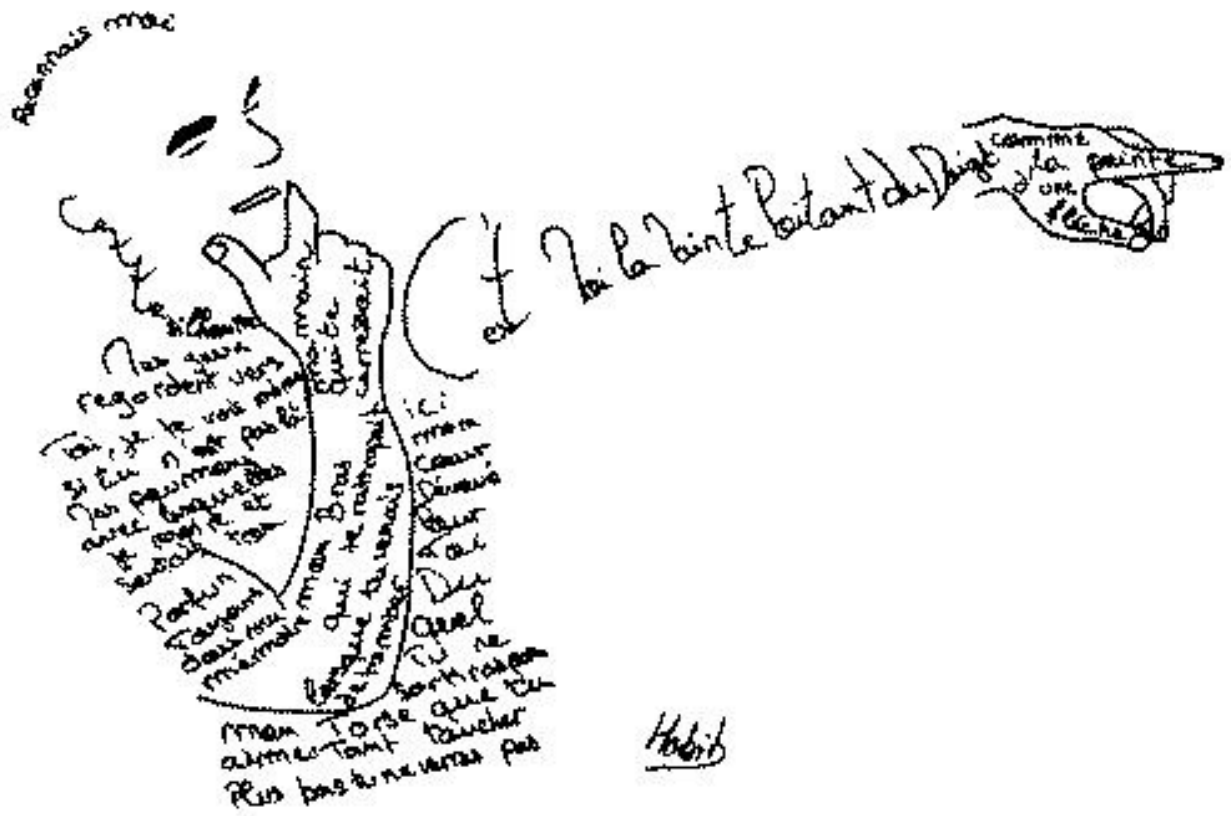 Reconnais moi
Mes yeux
regardent vers
Toi, je te vois même
si tu n'est pas là
Mes poumons
avec lesquelles
je respire et
sentais ton
Parfum
Toujours
dans ma
memoire
ma main
qui te
caressait
mon Bras
qui te rattrapait
lorsque tu venais
de tomber
ici
mon
coeur
pour
Toi
Du
quel
Tu ne
sortira
mon Torse que tu
aimes Tant toucher
Plus bas tu ne verras pas
Et
Toi la Pointant du Doigt
comme
la pointe
une
flèche
Habib